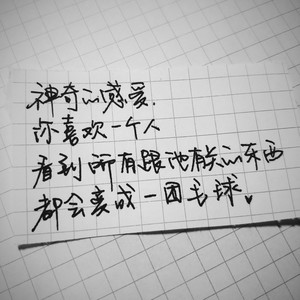 神奇的感爱.
你喜欢一个人
看到所有跟他有关的东西
都会变成一团毛球。